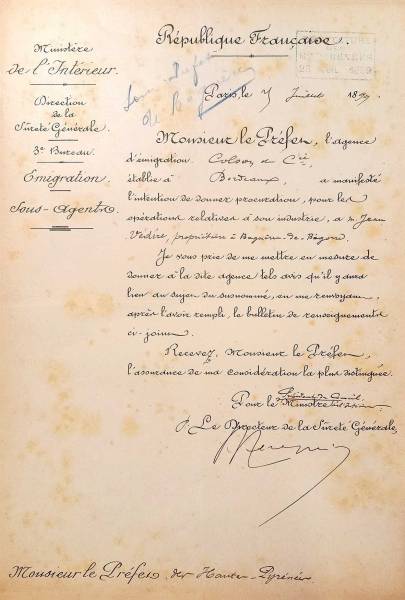 République Française.
Ministère
de l'Intérieur.
Direction
de la
Sûreté Générale.
3e Bureau.
Emigration.
Sous-Agents
Sous-Préfet
de
Paris, le Juillet 189
Monsieur le Préfet, l'agence
d'émigration Colson & Cie
établie à Bordeaux, a manifesté
l'intention de donner procuration, pour les
opérations relatives à son industrie, à M. Jean
propriétaire à
Je vous prie de me mettre en mesure de
donner à la dite agence tels avis qu'il y aura
lieu au sujet du susnommé, en me renvoyant,
après l'avoir rempli, le bulletin de renseignements
ci-joint.
Recevez, Monsieur le Préfet,
l'assurance de ma considération la plus distinguée.
Président du Conseil
Pour le Ministre
Le Directeur de la Sûreté Générale,
Monsieur le Préfet des Hautes-Pyrénées